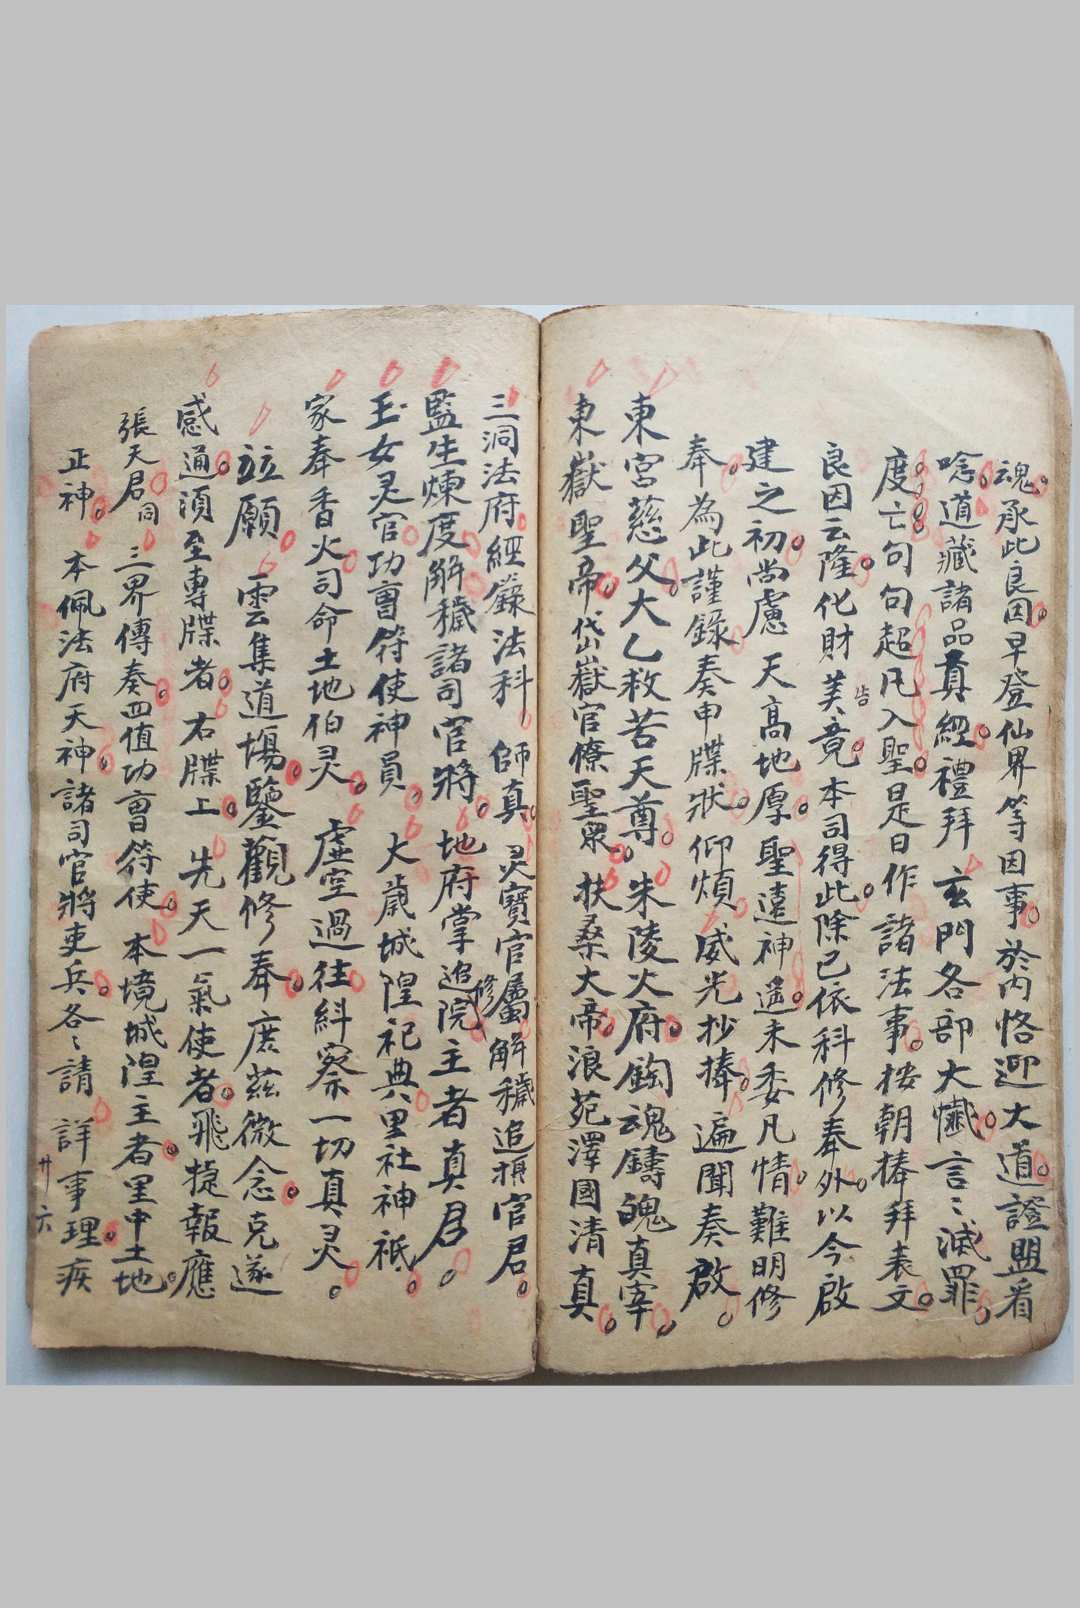 魂承此良因。早登仙界等因事。於內恪迎大道。證盟看
唸。道藏諸品真經。禮拜玄門各部大懺。言〻滅罪。
度亡句句超凡入聖。是日作諸法事。按朝捧拜表文。
良因云隆。化財美竟。本司得此。除已依科修奉外。以今啟
建之初。尚慮天高地厚。聖遠神遥。未委凡情。難明修
奉。為此謹錄奏申牒狀。仰煩威光抄捧。遍聞奏啟。
東宮慈父大乙救苦天尊。朱陵火府。鍧魂鑄魄真宰。
東嶽聖帝。岱嶽官僚聖眾。扶桑大帝。浪苑澤國清真。
三洞法府經籙法科師真。灵寶官屬解穢追攝官君。
監生煉度解穢諸司官將。地府掌追修院主者真君。
玉女灵官功曹符使神員。大歲城隍祀典里社神祇。
家奉香火司命土地伯灵。虛空過往糾察一切真灵。
竝願雲集道場。鑒觀修奉。庶茲微念。克遂
感通。須至專牒者。右牒上。先天一氣使者。飛捷報應
張天君同三界傳奏。四值功曹符使。本境城湟主者。里中土地。
正神。本佩法府天神。諸司官將吏兵。各〻請詳事理。疾
廿六